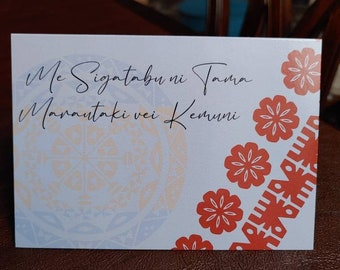 Me Sigatabu ni Tama
Marautaki vei Kemuni